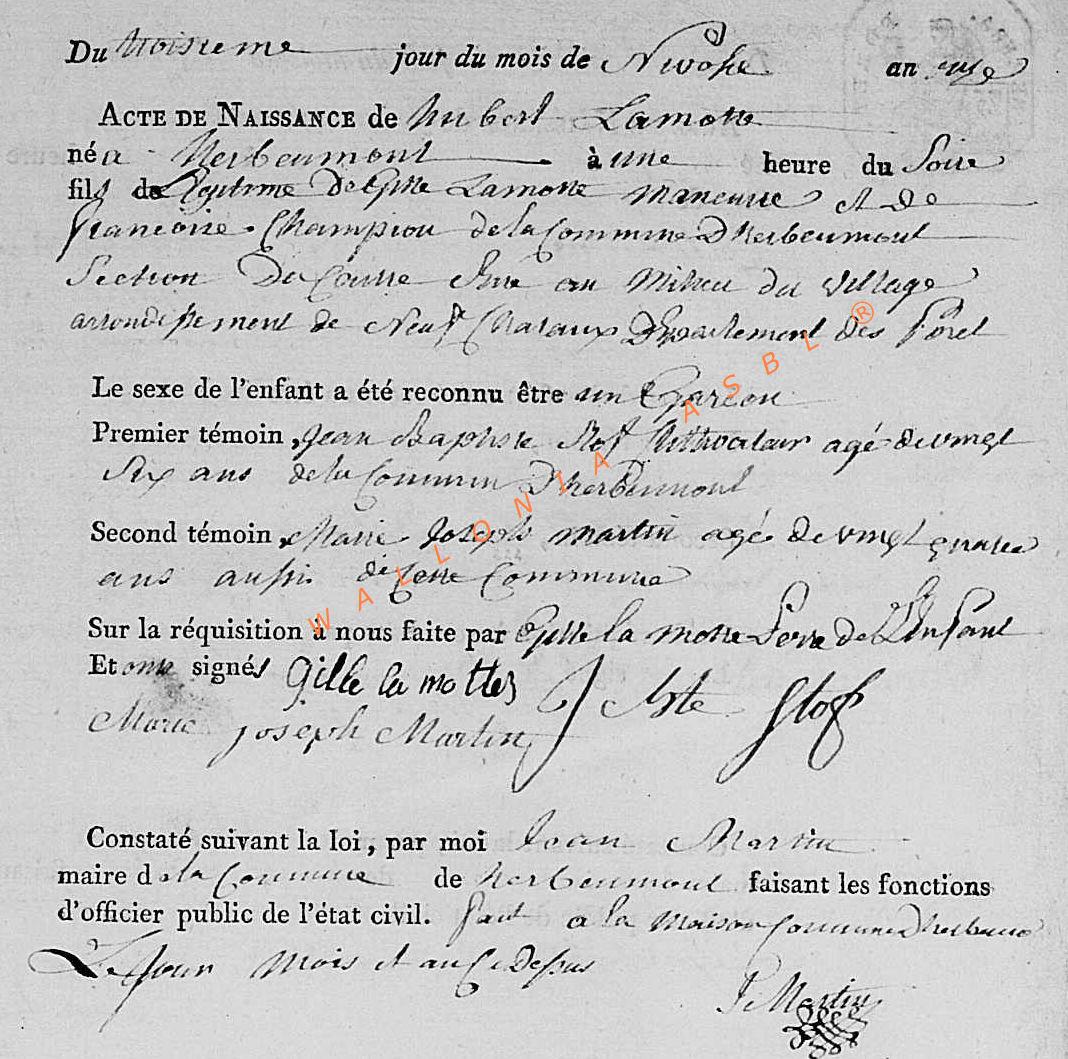 Du troisieme jour du mois de Nivose an onze
ACTE DE NAISSANCE de hubert Lamotte
né a herbeumont à une heure du Soire
fils de Legitime De Gille Lamotte maneuvre et de
francoise Champion de la Commune Dherbeumont
Section Du Centre Size au Milieu du village
arrondissement de Neuf Chataux Departement des Foret
Le sexe de l'enfant a été reconnu être un Garcon
Premier témoin, Jean Baptiste Stof Cultivateur agé de vingt
Six ans de la Commun Dherbeumont
Second témoin, Marie Joseph martin agé de vingt quatre
ans aussi de Cette Commune
Sur la réquisition à nous faite par Gille la motte Perre de L'Enfant
Et ont signés gille la motte Bte Stof
Marie joseph Martin
Constaté suivant la loi, par moi Jean Martin
maire de la Commune de herbeumont faisant les fonctions
d'officier public de l'état civil. fait a la Maison Commune Dherbeumo
Le Jour Mois et an Ci Depus
J Martin
WALLONIA ASBL ®